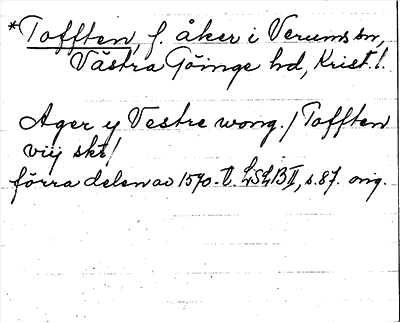 *Tofften, f. åker i Verums sn,
Västra Göinge hd, Krist. l.
Ager y Vestre wong. / Tofften
viij skt /
förra delen av 1570-t. LSLB II, s. 87. orig.